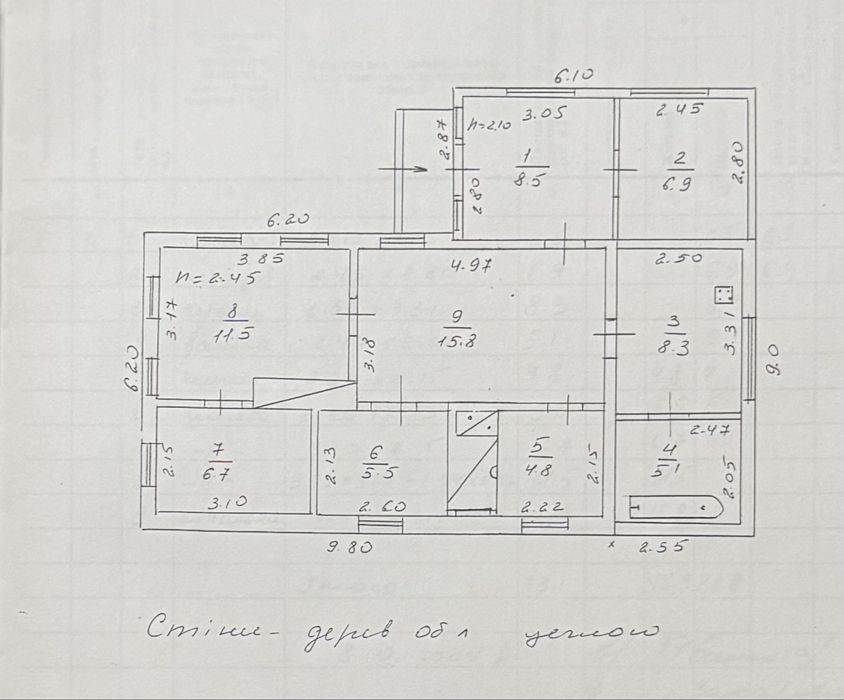 6.10
3.05
2.45
h=2.10
2.87
1
8.5
2
6.9
2.80
2.80
6.20
3.85
4.97
2.50
h=2.45
8
11.5
3.17
9
15.8
3.18
3
8.3
3.31
6.20
9.0
2.47
7
6.7
2.15
3.10
6
5.5
2.13
2.60
5
4.8
2.15
2.22
4
5.1
2.05
9.80
2.55
Стіни - дерев обл цеглою